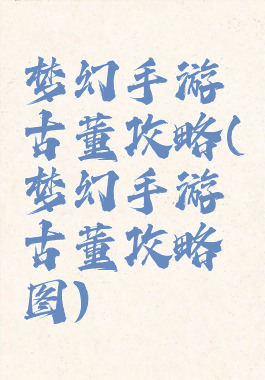 梦幻手游
古董攻略(
梦幻手游
古董攻略
图)